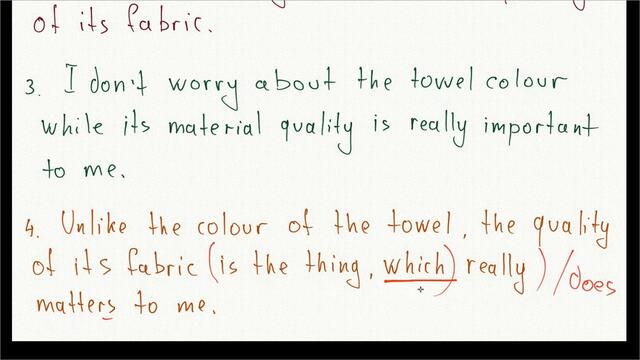 of its fabric.
3. I don't worry about the towel colour
while its material quality is really important
to me.
4. Unlike the colour of the towel, the quality
of its fabric (is the thing, which) really) / does
matters to me.